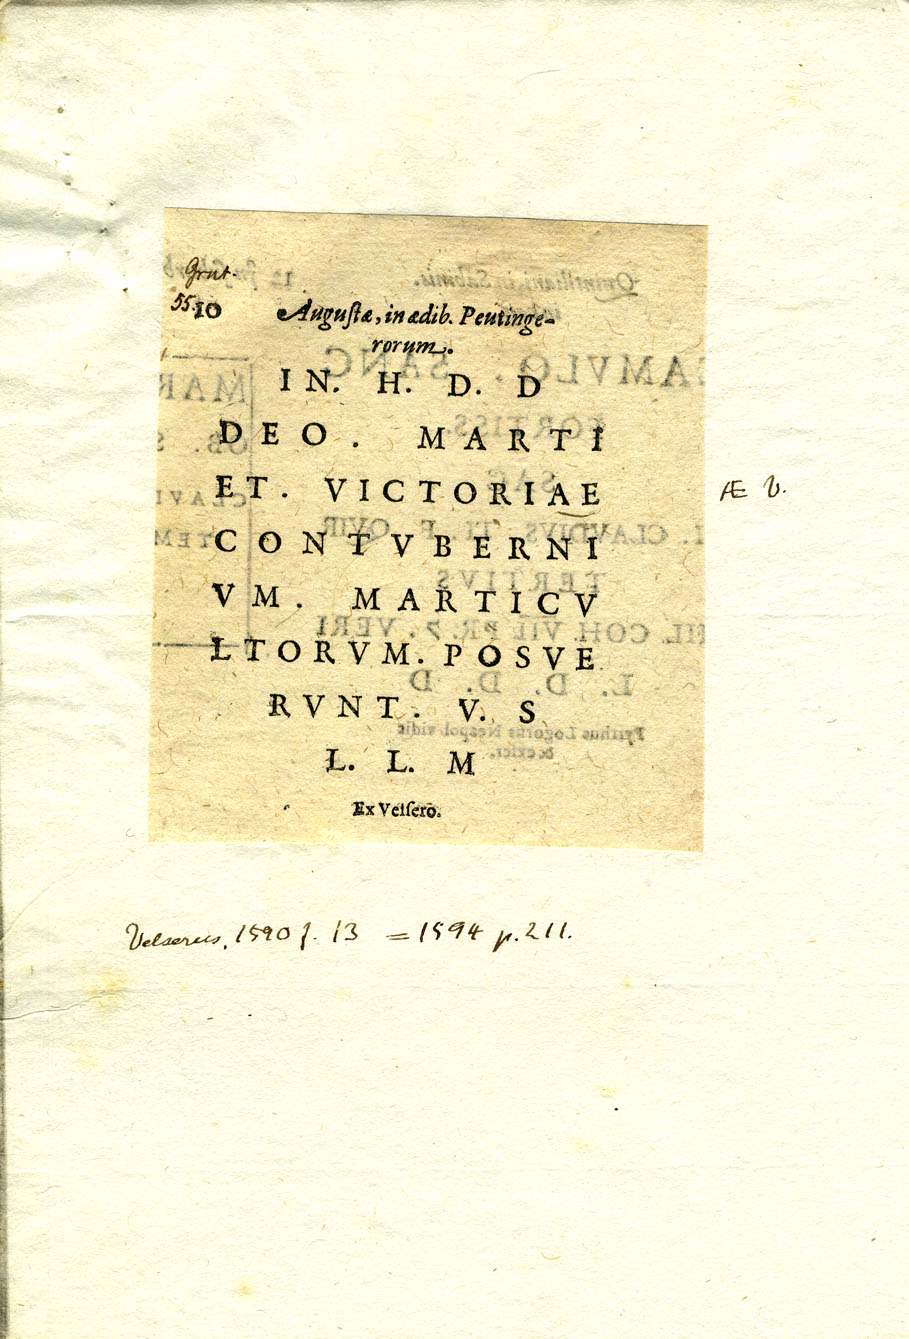 Grut.
55.10 Augustæ, in ædib. Peutinge-
rorum.
IN. H. D. D
DEO. MARTI
ET. VICTORIAE
ÆE V.
CONTVBERNI
VM. MARTICV
LTORVM. POSVE
RVNT. V. S
L. L. M
Ex Velsero.
Velserus, 1590 f. 13 = 1594 p. 211.